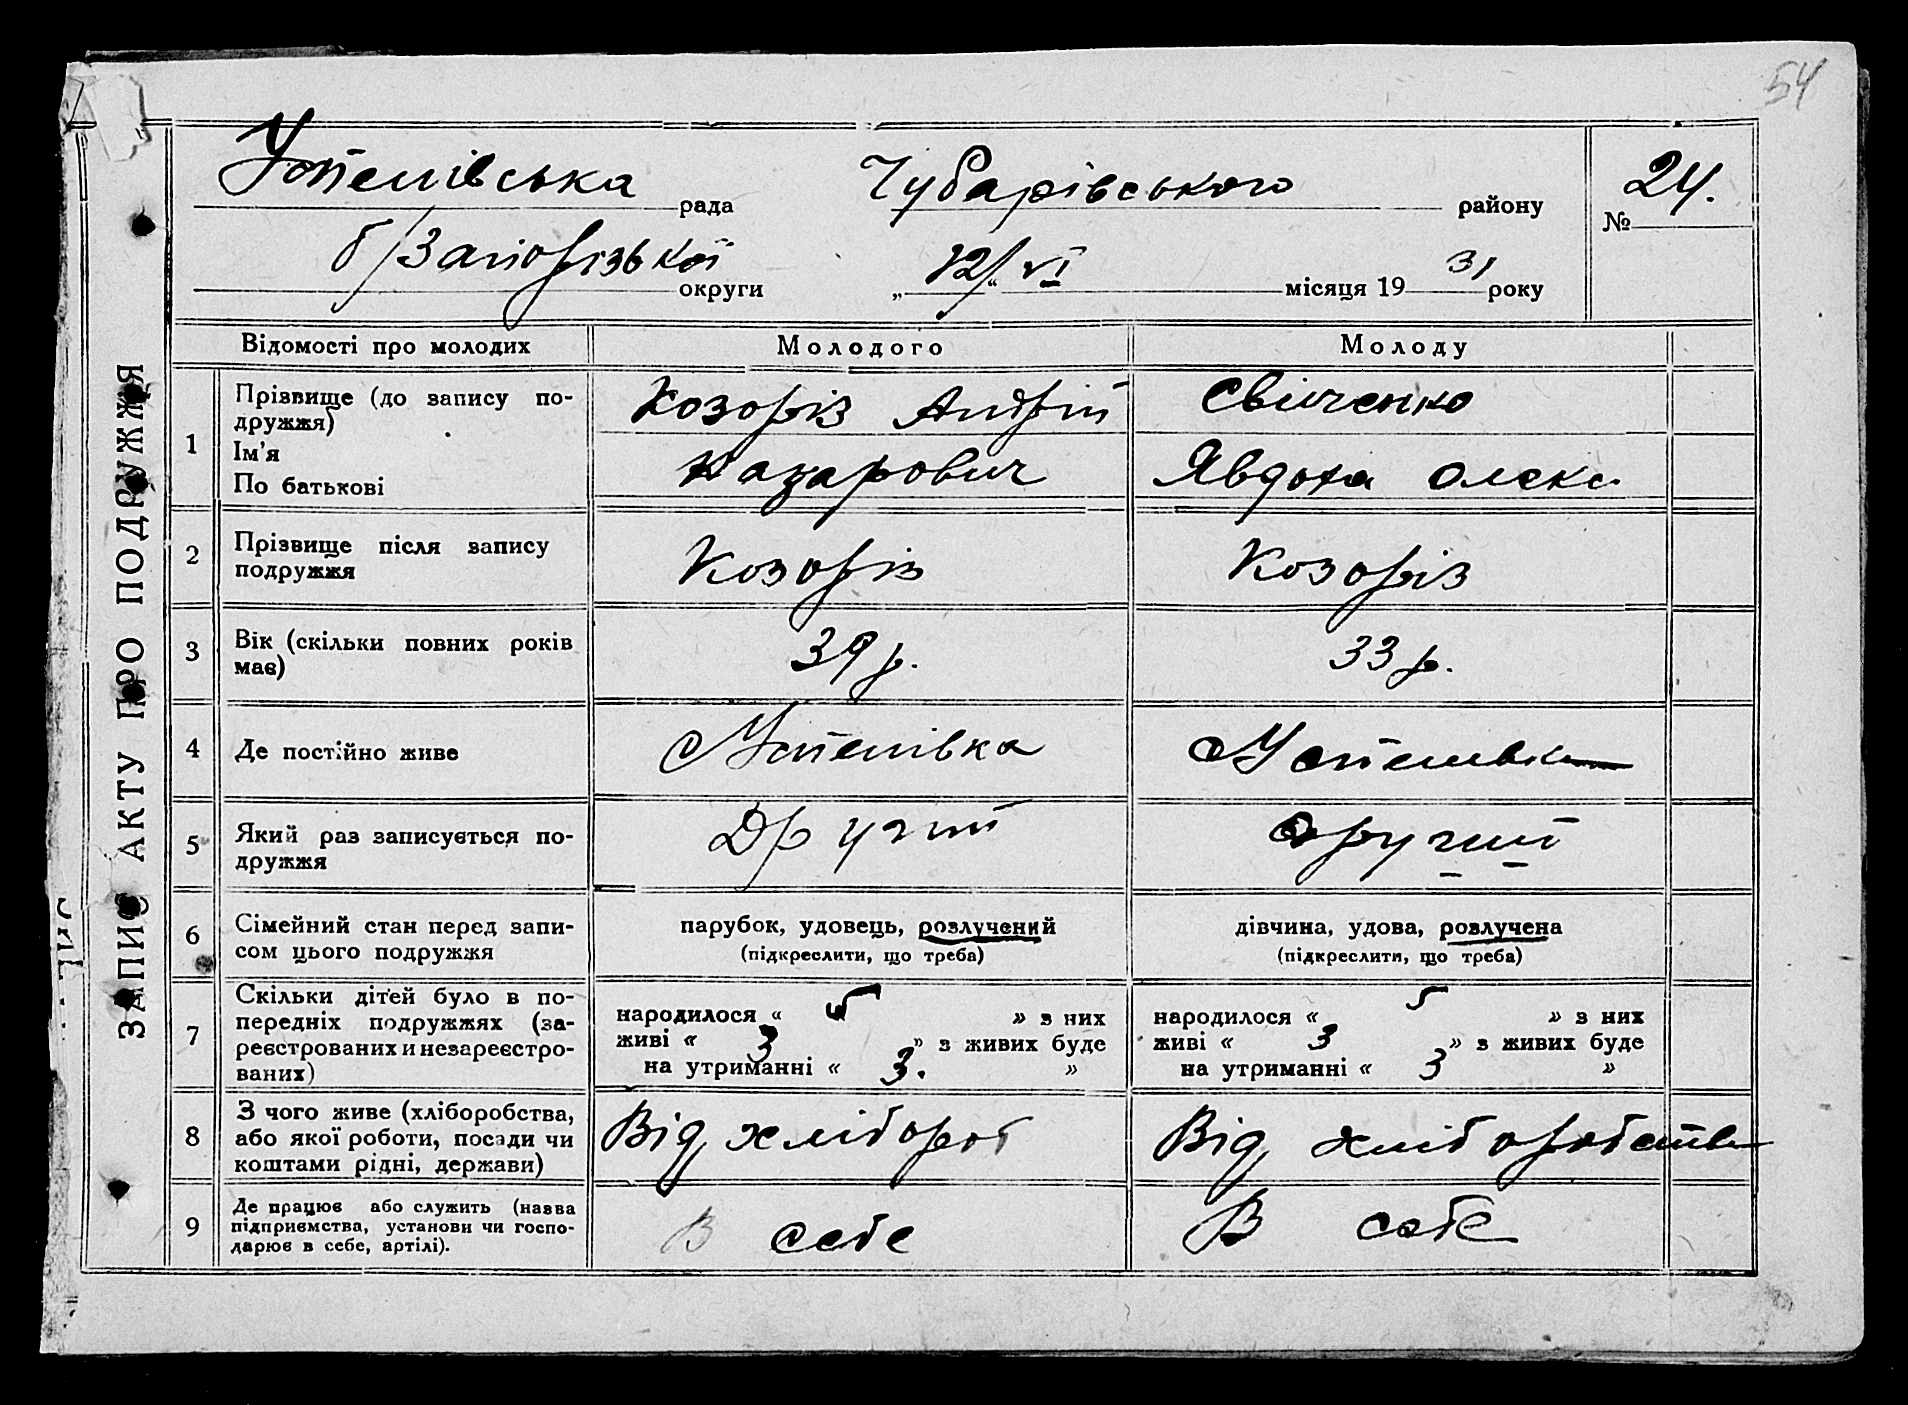 54
Успенівська рада Чубарівського району № 24.
б/Запорізької округи „12/“ VI місяця 1931 року
ЗАПИС АКТУ ПРО ПОДРУЖЖЯ
Відомості про молодих Молодого Молоду
1 Прізвище (до запису по-
дружжя)
Ім'я
По батькові
Козоріз Андрій
Назарович
Свінченко
Явдоха Олекс
2 Прізвище після запису
подружжя
Козоріз Козоріз
3 Вік (скільки повних років
має)
39 р. 33 р.
4 Де постійно живе
с Успенівка с Успенівка
5 Який раз записується по-
дружжя
Другий другий
6 Сімейний стан перед запи-
сом цього подружжя
парубок, удовець, розлучений
(підкреслити, що треба)
дівчина, удова, розлучена
(підкреслити, що треба)
7 Скільки дітей було в по-
передніх подружжях (за-
реєстрованих и незареєстро-
ваних)
народилося « 5 » з них
живі « 3 » з живих буде
на утриманні « 3. »
народилося « 5 » з них
живі « 3 » з живих буде
на утриманні « 3 »
8 З чого живе (хліборобства,
або якої роботи, посади чи
коштами рідні, держави)
Від хлібороб Від хліборобства
9 Де працює або служить (назва
підприємства, установи чи госпо-
дарює в себе, артілі).
В себе В себе